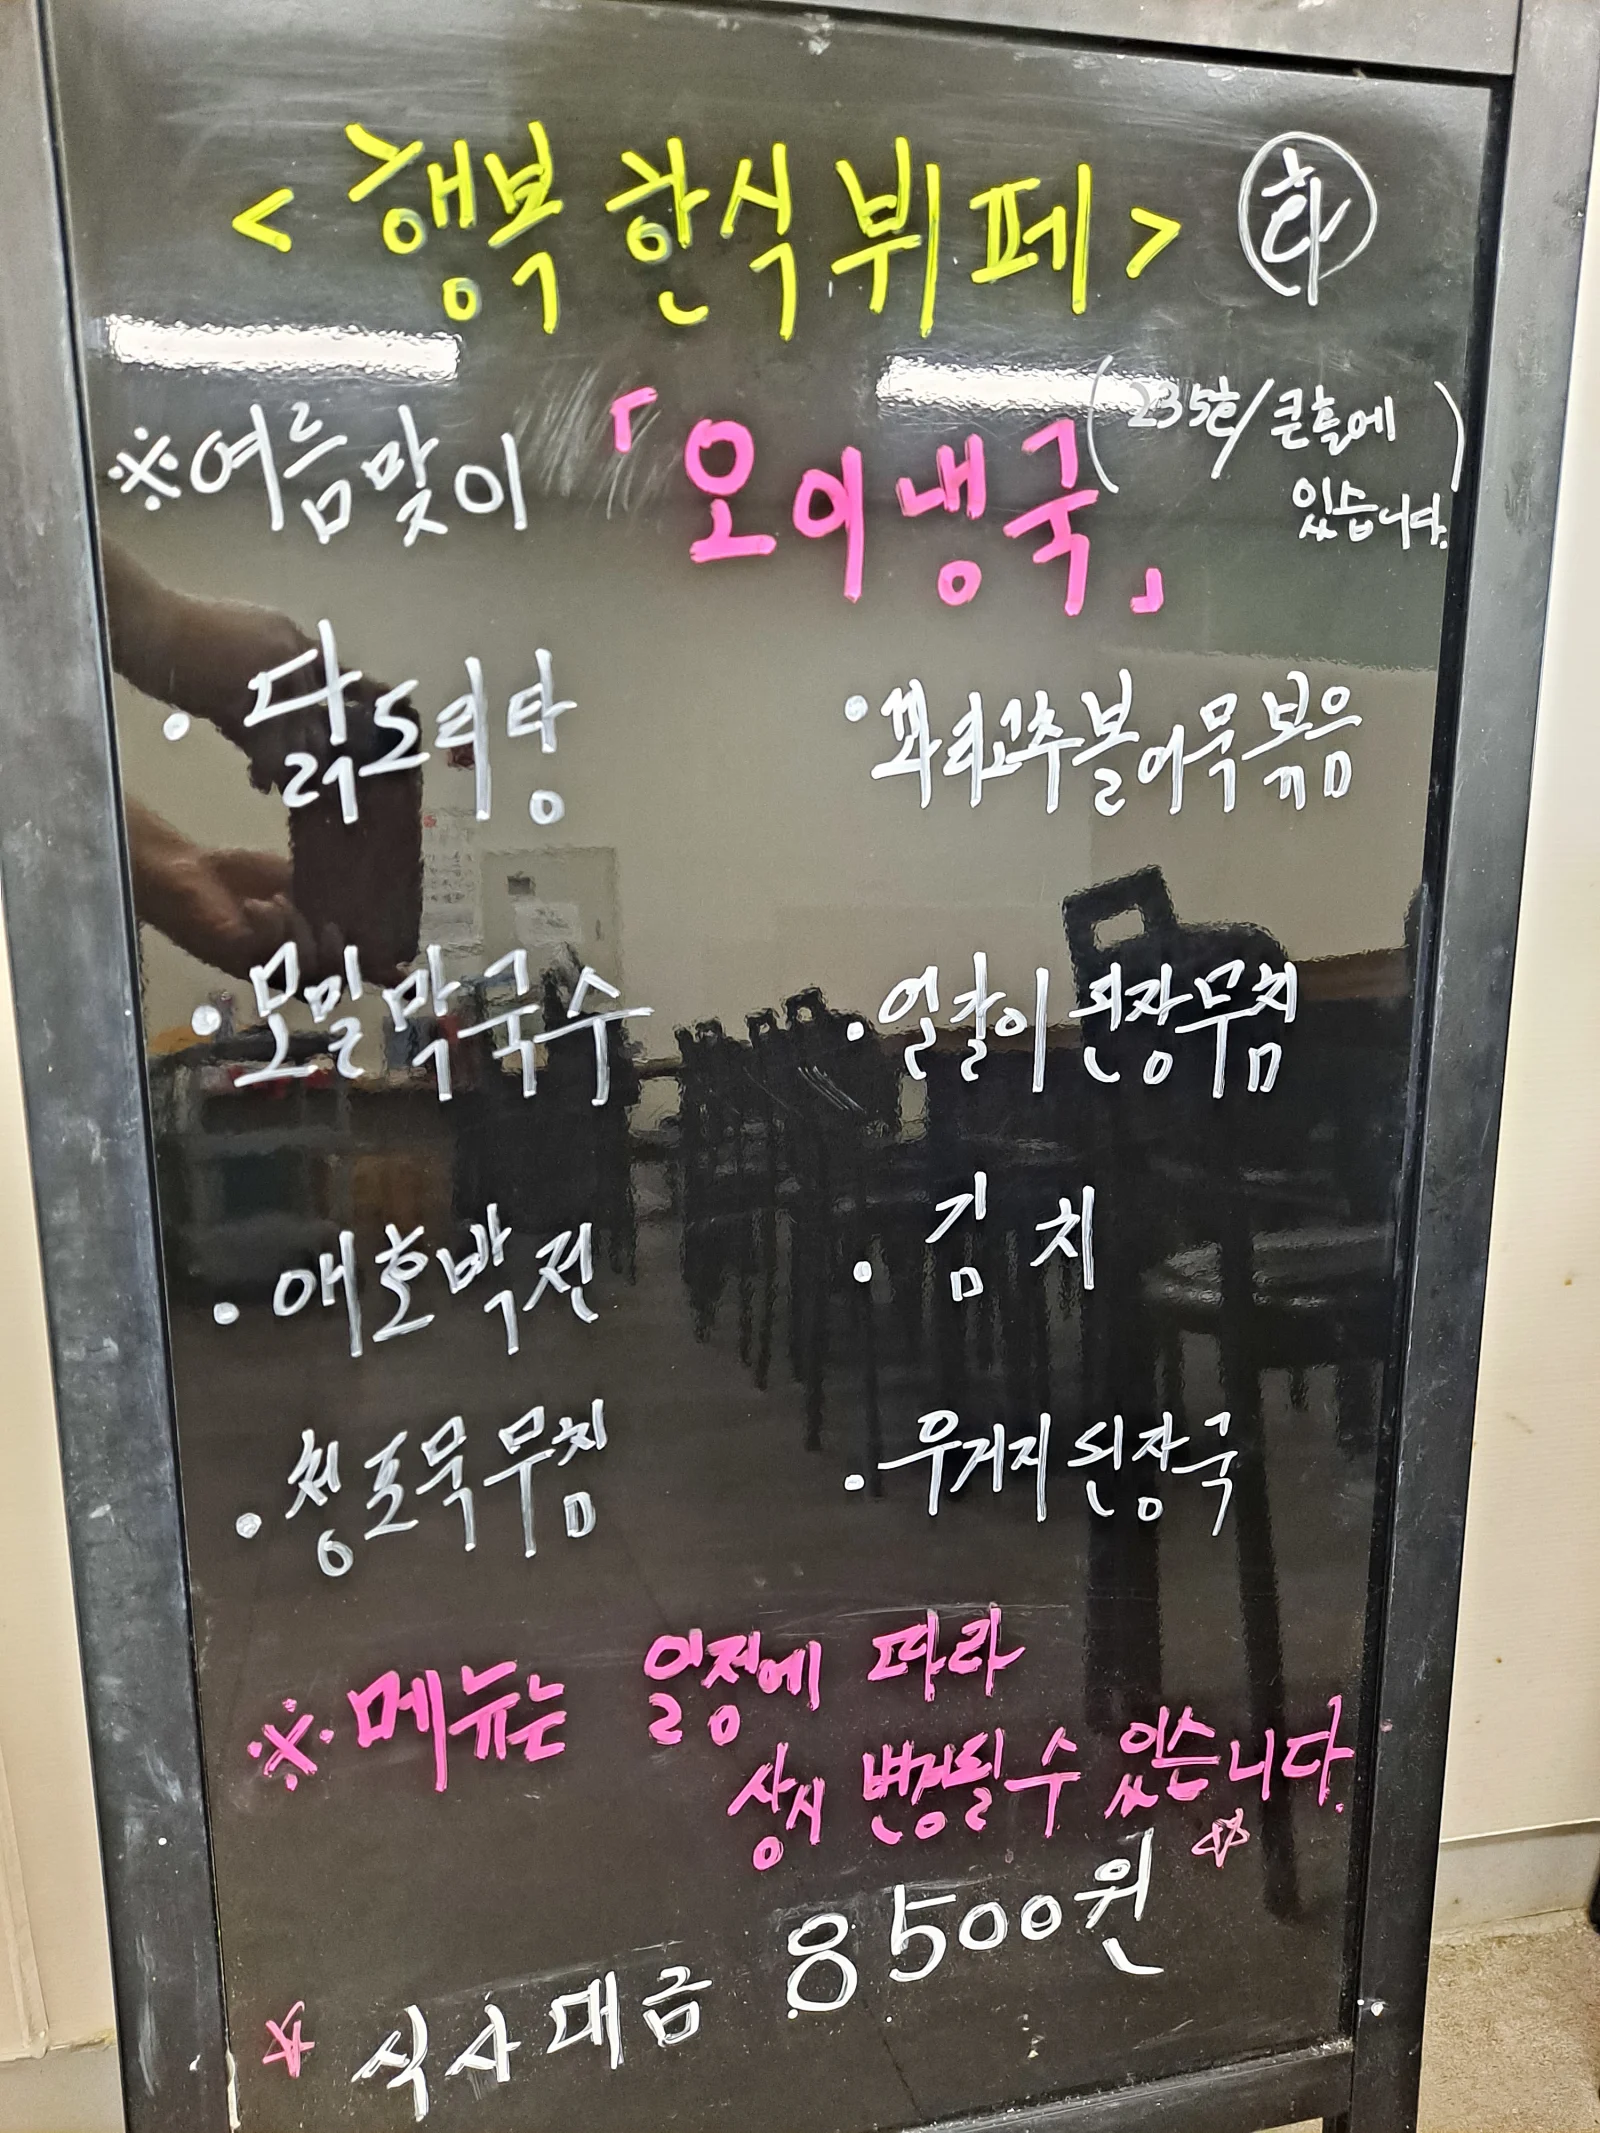 <행복 한식 뷔페> 화
※여름맞이 「오이냉국」 (235호/큰홀에
있습니다.)
· 닭도리탕
· 꽈리고추불어묵볶음
· 모밀막국수
· 얼갈이 된장무침
· 애호박전
· 김치
· 청포묵무침
· 우거지 된장국
※메뉴는 일정에 따라
상시 변경될 수 있습니다.
☆ 식사대금 8500원 ☆